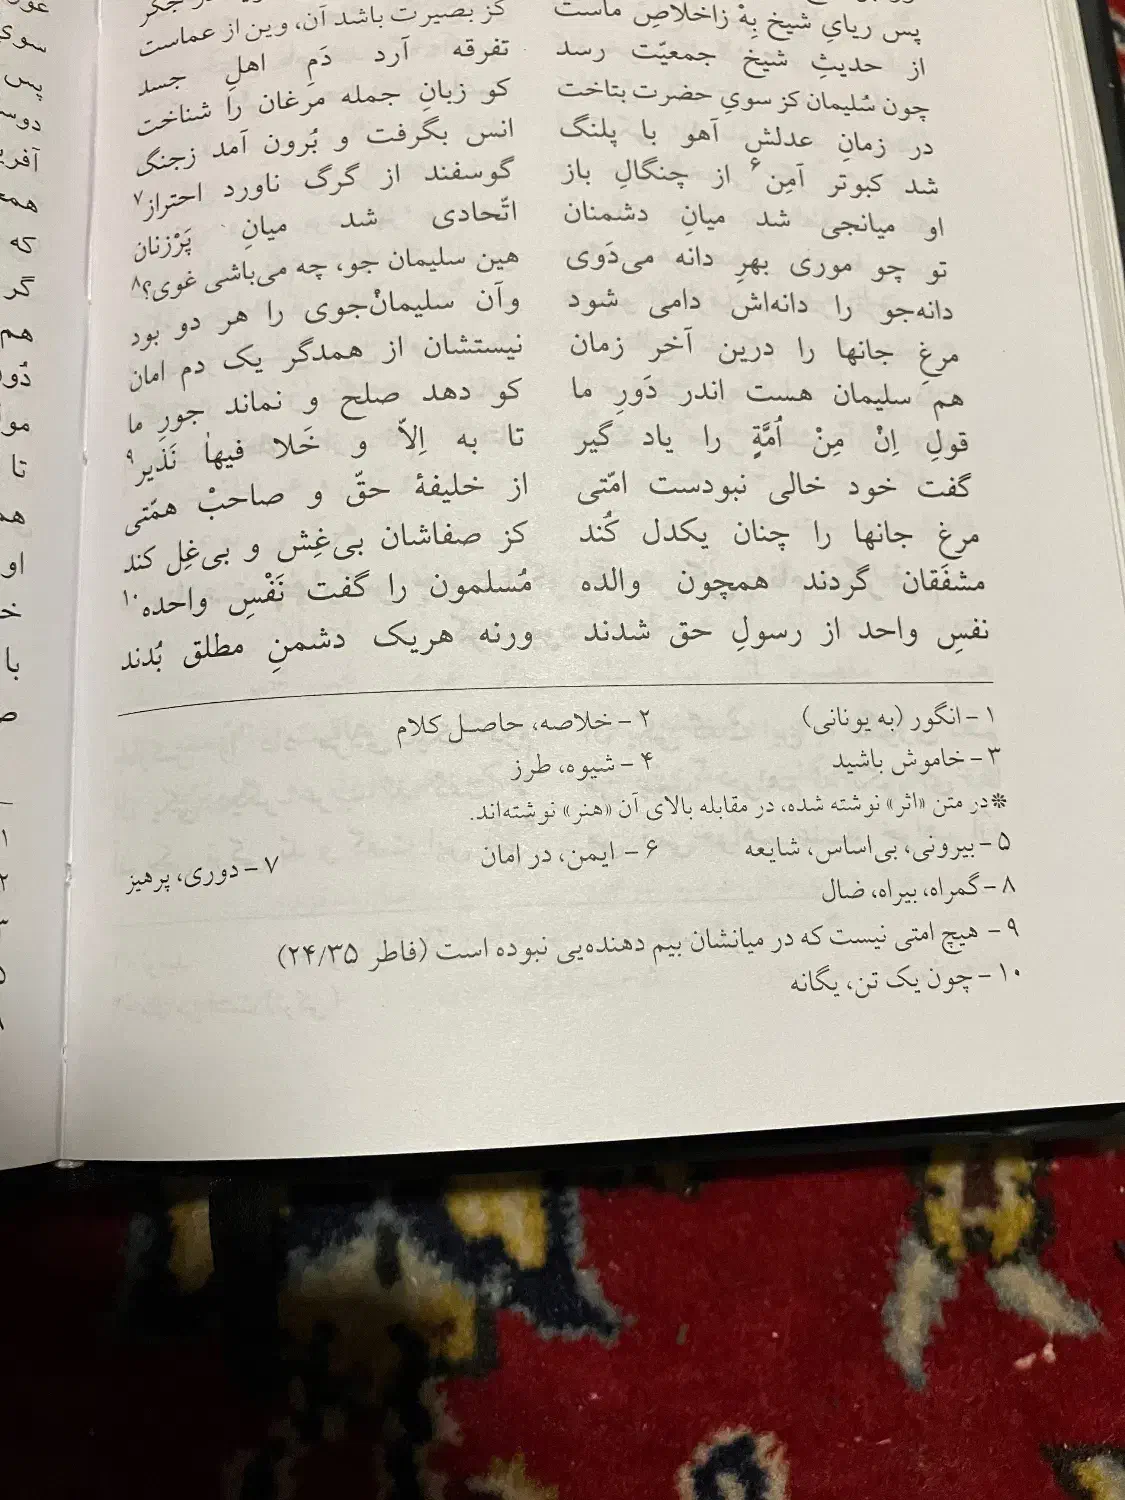 پس ریایِ شیخ بِهْ زاخلاصِ ماست کز بصیرت باشد آن، وین از عماست
از حدیثِ شیخ جمعیّت رسد تفرقه آرد دَمِ اهلِ جسد
چون سُلیمان کز سویِ حضرت بتاخت کو زبانِ جمله مرغان را شناخت
در زمانِ عدلش آهو با پلنگ انس بگرفت و بُرون آمد زجنگ
شد کبوتر آمِن۶ از چنگالِ باز گوسفند از گرگ ناورد احتراز۷
او میانجی شد میانِ دشمنان اتّحادی شد میانِ پَرْزنان
تو چو موری بهرِ دانه می‌دَوی هین سلیمان جو، چه می‌باشی غوی؟۸
دانه‌جو را دانه‌اش دامی شود وآن سلیمانْ‌جوی را هر دو بود
مرغِ جانها را درین آخر زمان نیستشان از همدگر یک دم امان
هم سلیمان هست اندر دَورِ ما کو دهد صلح و نماند جورِ ما
قولِ اِنْ مِنْ اُمَّةٍ را یاد گیر تا به اِلاّ و خَلا فیهاٰ نَذیر۹
گفت خود خالی نبودست امّتی از خلیفهٔ حقّ و صاحبْ همّتی
مرغِ جانها را چنان یکدل کُند کز صفاشان بی‌غِش و بی‌غِل کند
مشفَقان گردند همچون والده مُسلمون را گفت نَفْسِ واحده۱۰
نفسِ واحد از رسولِ حق شدند ورنه هریک دشمنِ مطلق بُدند
۱ – انگور (به یونانی) ۲ – خلاصه، حاصل کلام
۳ – خاموش باشید ۴ – شیوه، طرز
※در متن «اثر» نوشته شده، در مقابله بالای آن «هنر» نوشته‌اند.
۵ – بیرونی، بی‌اساس، شایعه ۶ – ایمن، در امان ۷ – دوری، پرهیز
۸ – گمراه، بیراه، ضال
۹ – هیچ امتی نیست که در میانشان بیم دهنده‌یی نبوده است (فاطر ۲۴/۳۵)
۱۰ – چون یک تن، یگانه